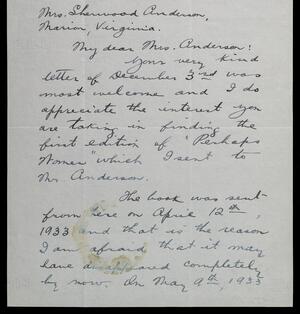 Mrs. Sherwood Anderson,
Marion, Virginia.
My dear Mrs. Anderson:
Your very kind
letter of December 3rd was
most welcome and I do
appreciate the interest you
are taking in finding the
first edition of "Perhaps
Women" which I sent to
Mr. Anderson.
The book was sent
from here on April 12th,
1933 and that is the reason
I am afraid that it may
have disappeared completely
by now. On May 9th, 1933